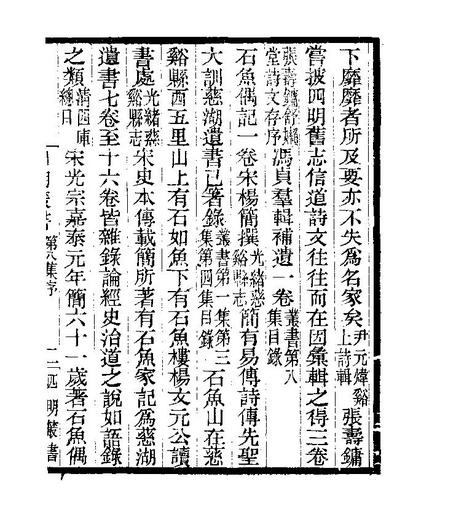 下靡靡者所及要亦不失爲名家矣尹元煒谿上詩輯張壽鏞
嘗披四明舊志信道詩文往往而在因彙輯之得三卷
張壽鏞舒嬾堂詩文存序馮貞羣輯補遺一卷叢書第八集目錄
石魚偶記一卷宋楊簡撰光緒慈谿縣志簡有易傳詩傳先聖
大訓慈湖遺書已著錄叢書第一集第三集第四集目錄石魚山在慈
谿縣西五里山上有石如魚下有石魚樓楊文元公讀
書處光緒慈谿縣志宋史本傳載簡所著有石魚家記爲慈湖
遺書七卷至十六卷皆雜錄論經史治道之說如語錄
之類清四庫總目宋光宗嘉泰元年簡六十一歲著石魚偶
第八集序 二 四明叢書